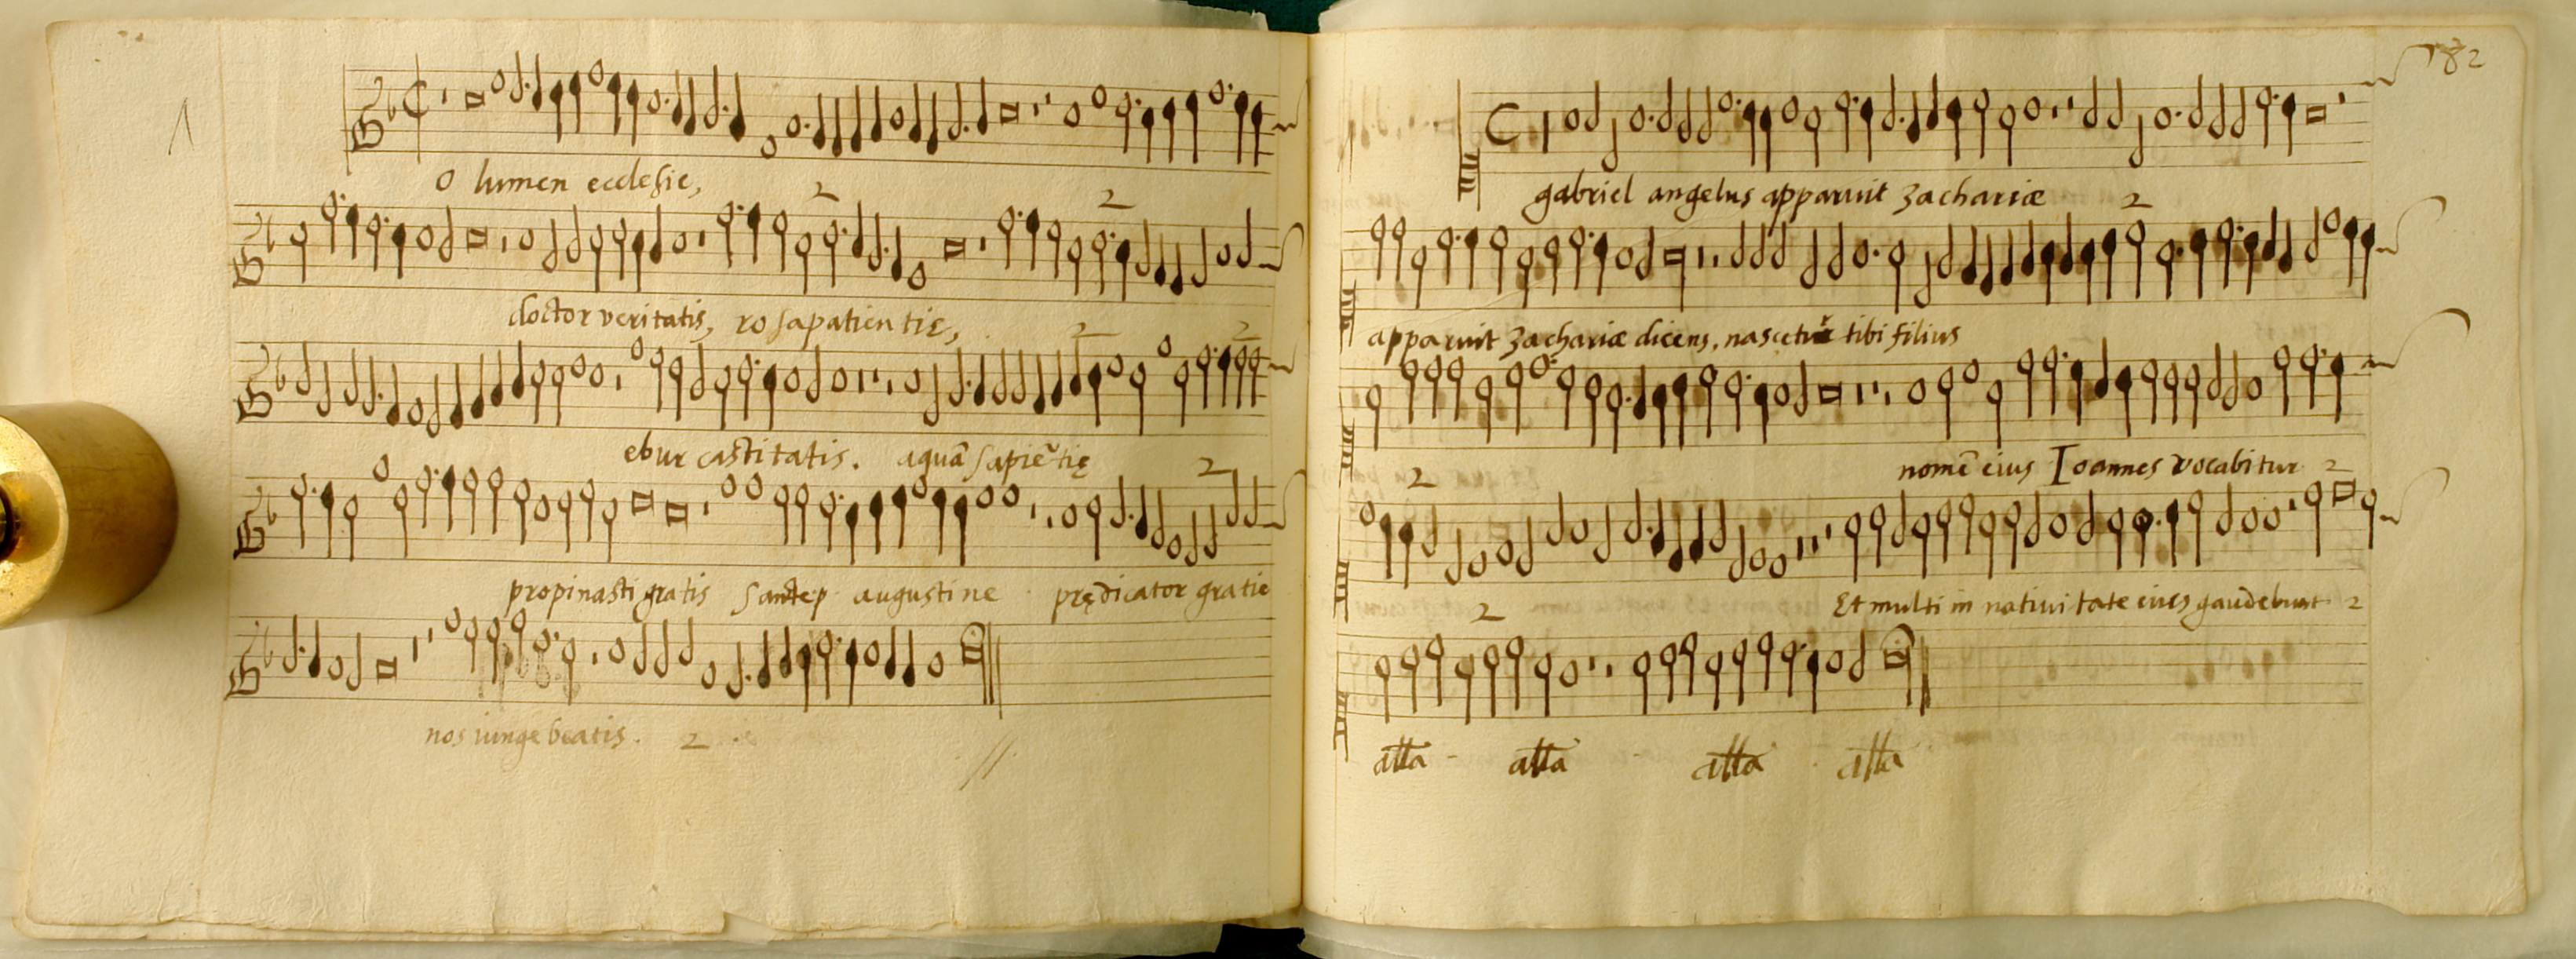 O lumen ecclesie,
2 2
doctor veritatis, rosapatientie,
2 2
ebur castitatis. aquā sapiētię
2
propinasti gratis Sanctep augustine prędicator gratie
nos iunge beatis. 2
182
gabriel angelus apparuit zachariæ
2
apparuit zachariæ dicens, nascetur tibi filius
2 nomē eius Ioannes vocabitur 2
2 Et multi in nativitate eius gaudebunt 2
alla alla alla alla